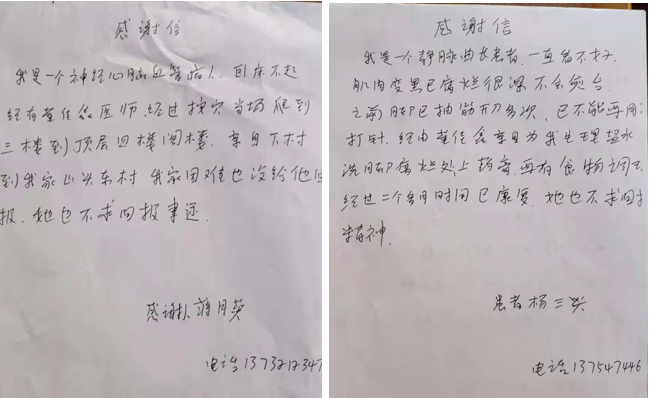 感谢信
我是一个神经心脑血管病人 卧床不起
经有董佳鑫医师.经过按穴当场爬到
三楼到顶层四楼阁楼. 亲自下村
到我家山头东村 我家困难也没给他回
报.她也不求回报事迹.
感谢人 蒋月英
电话1373212347
感谢信
我是一个静脉曲长患者.一直看不好.
肌肉变黑已腐烂很深不会愈合
之前脚已抽筋开刀多次,已不能再用
打针.经由董佳鑫亲自为我生理盐水
洗脚腐烂处上药膏.再有食物调
经过二个多月时间已康复.她也不求回
精神.
患者杨三
电话137547446